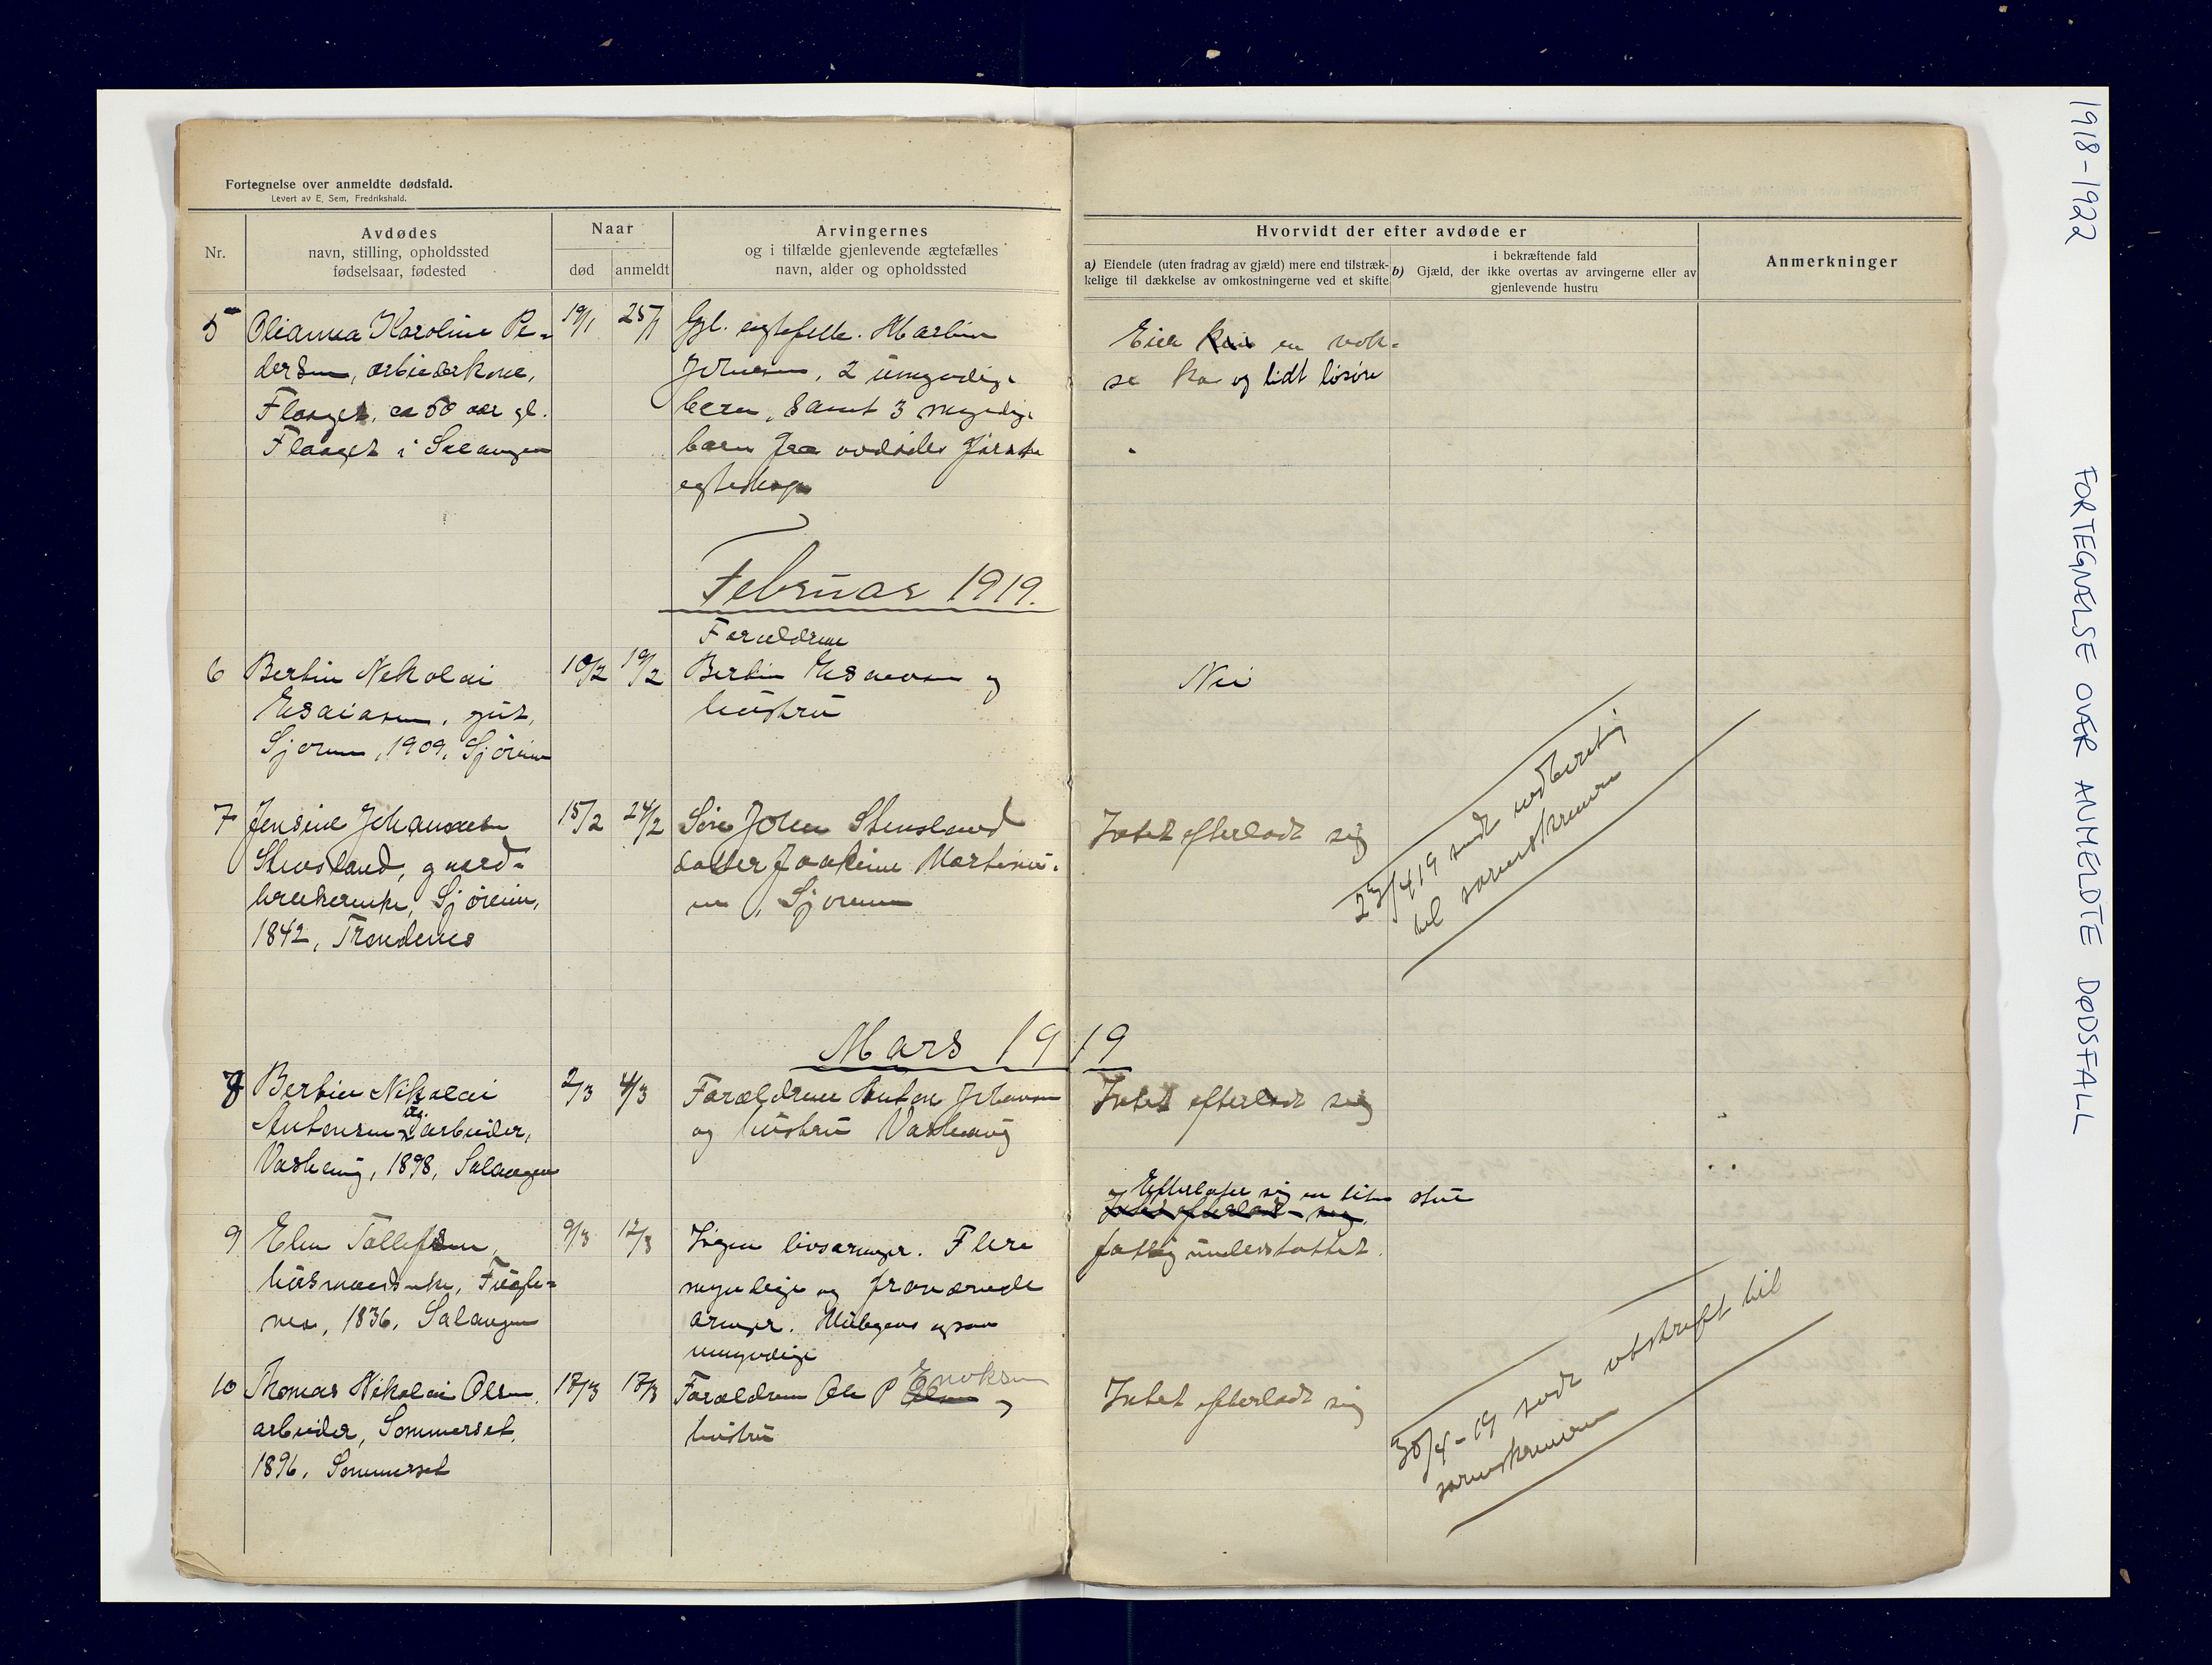 Fortegnelse over anmeldte dødsfald.
Levert av E. Sem, Fredrikshald.
Nr.
Avdødes
navn, stilling, opholdssted
fødselsaar, fødested
Naar
død
anmeldt
Arvingernes
og i tilfælde gjenlevende ægtefælles
navn, alder og opholdssted
Hvorvidt der efter avdøde er
a) Eiendele (uten fradrag av gjæld) mere end tilstræk-
kelige til dækkelse av omkostningerne ved et skifte
i bekræftende fald
b) Gjæld, der ikke overtas av arvingerne eller av
gjenlevende hustru
Anmerkninger
5 Olianna Karoline Pe- 19/1 25/1 Gjl. egtefelle. Martin
dersen, arbeiderkone, 2 umyndige
Flaaget, ca 50 aar gl. børn, samt 3 myndige
Flaaget i Salangen barn fra avdødes første
egteskap
Eier en vok-
se ko og lidt løsøre
Februar 1919.
Forældrene
6 Bertin Nekolai 10/2 19/2 Bertin Esaiasen og
Esaiasen, gut, hustru
Sjøveien, 1909, Sjøveien
Nei
7 Jensine Johannesen 15/2 24/2 Søn Johan Stensland
Stensland, gaard- datter Joakine Martinu-
brukerenke, Sjøveien, Sjøveien
1842, Trondenes
Intet efterladt sig
23/4 19 sendt indberetnig
til sorenskriveren
Mars 1919
8 Bertin Nikolai 2/3 4/3 Forældrene Anton Johansen
Antonsen, arbeider, og hustru Vasshaug
Vasshaug, 1898, Salangen
Intet efterladt sig
Efterlater sig en liten stue
Intet efterladt sig.
fattigunderstøttet.
9 Elen Tollefsen, 9/3 12/3 Ingen livsarvinger. Flere
husmandsenke, Fugle- myndige og fraværende
nes, 1836, Salangen arvinger. Muligens ogsaa
umyndige
10 Thomas Nikolai Olsen, 17/3 17/3 Forældrene Ole P Olsen Enoksen og
arbeider, Sommerset, hustru
1896, Sommerset
Intet efterladt sig
30/4-19 sendt utskrift til
sorenskriveren
1918-1922 FORTEGNELSE OVER ANMELDTE DØDSFALL